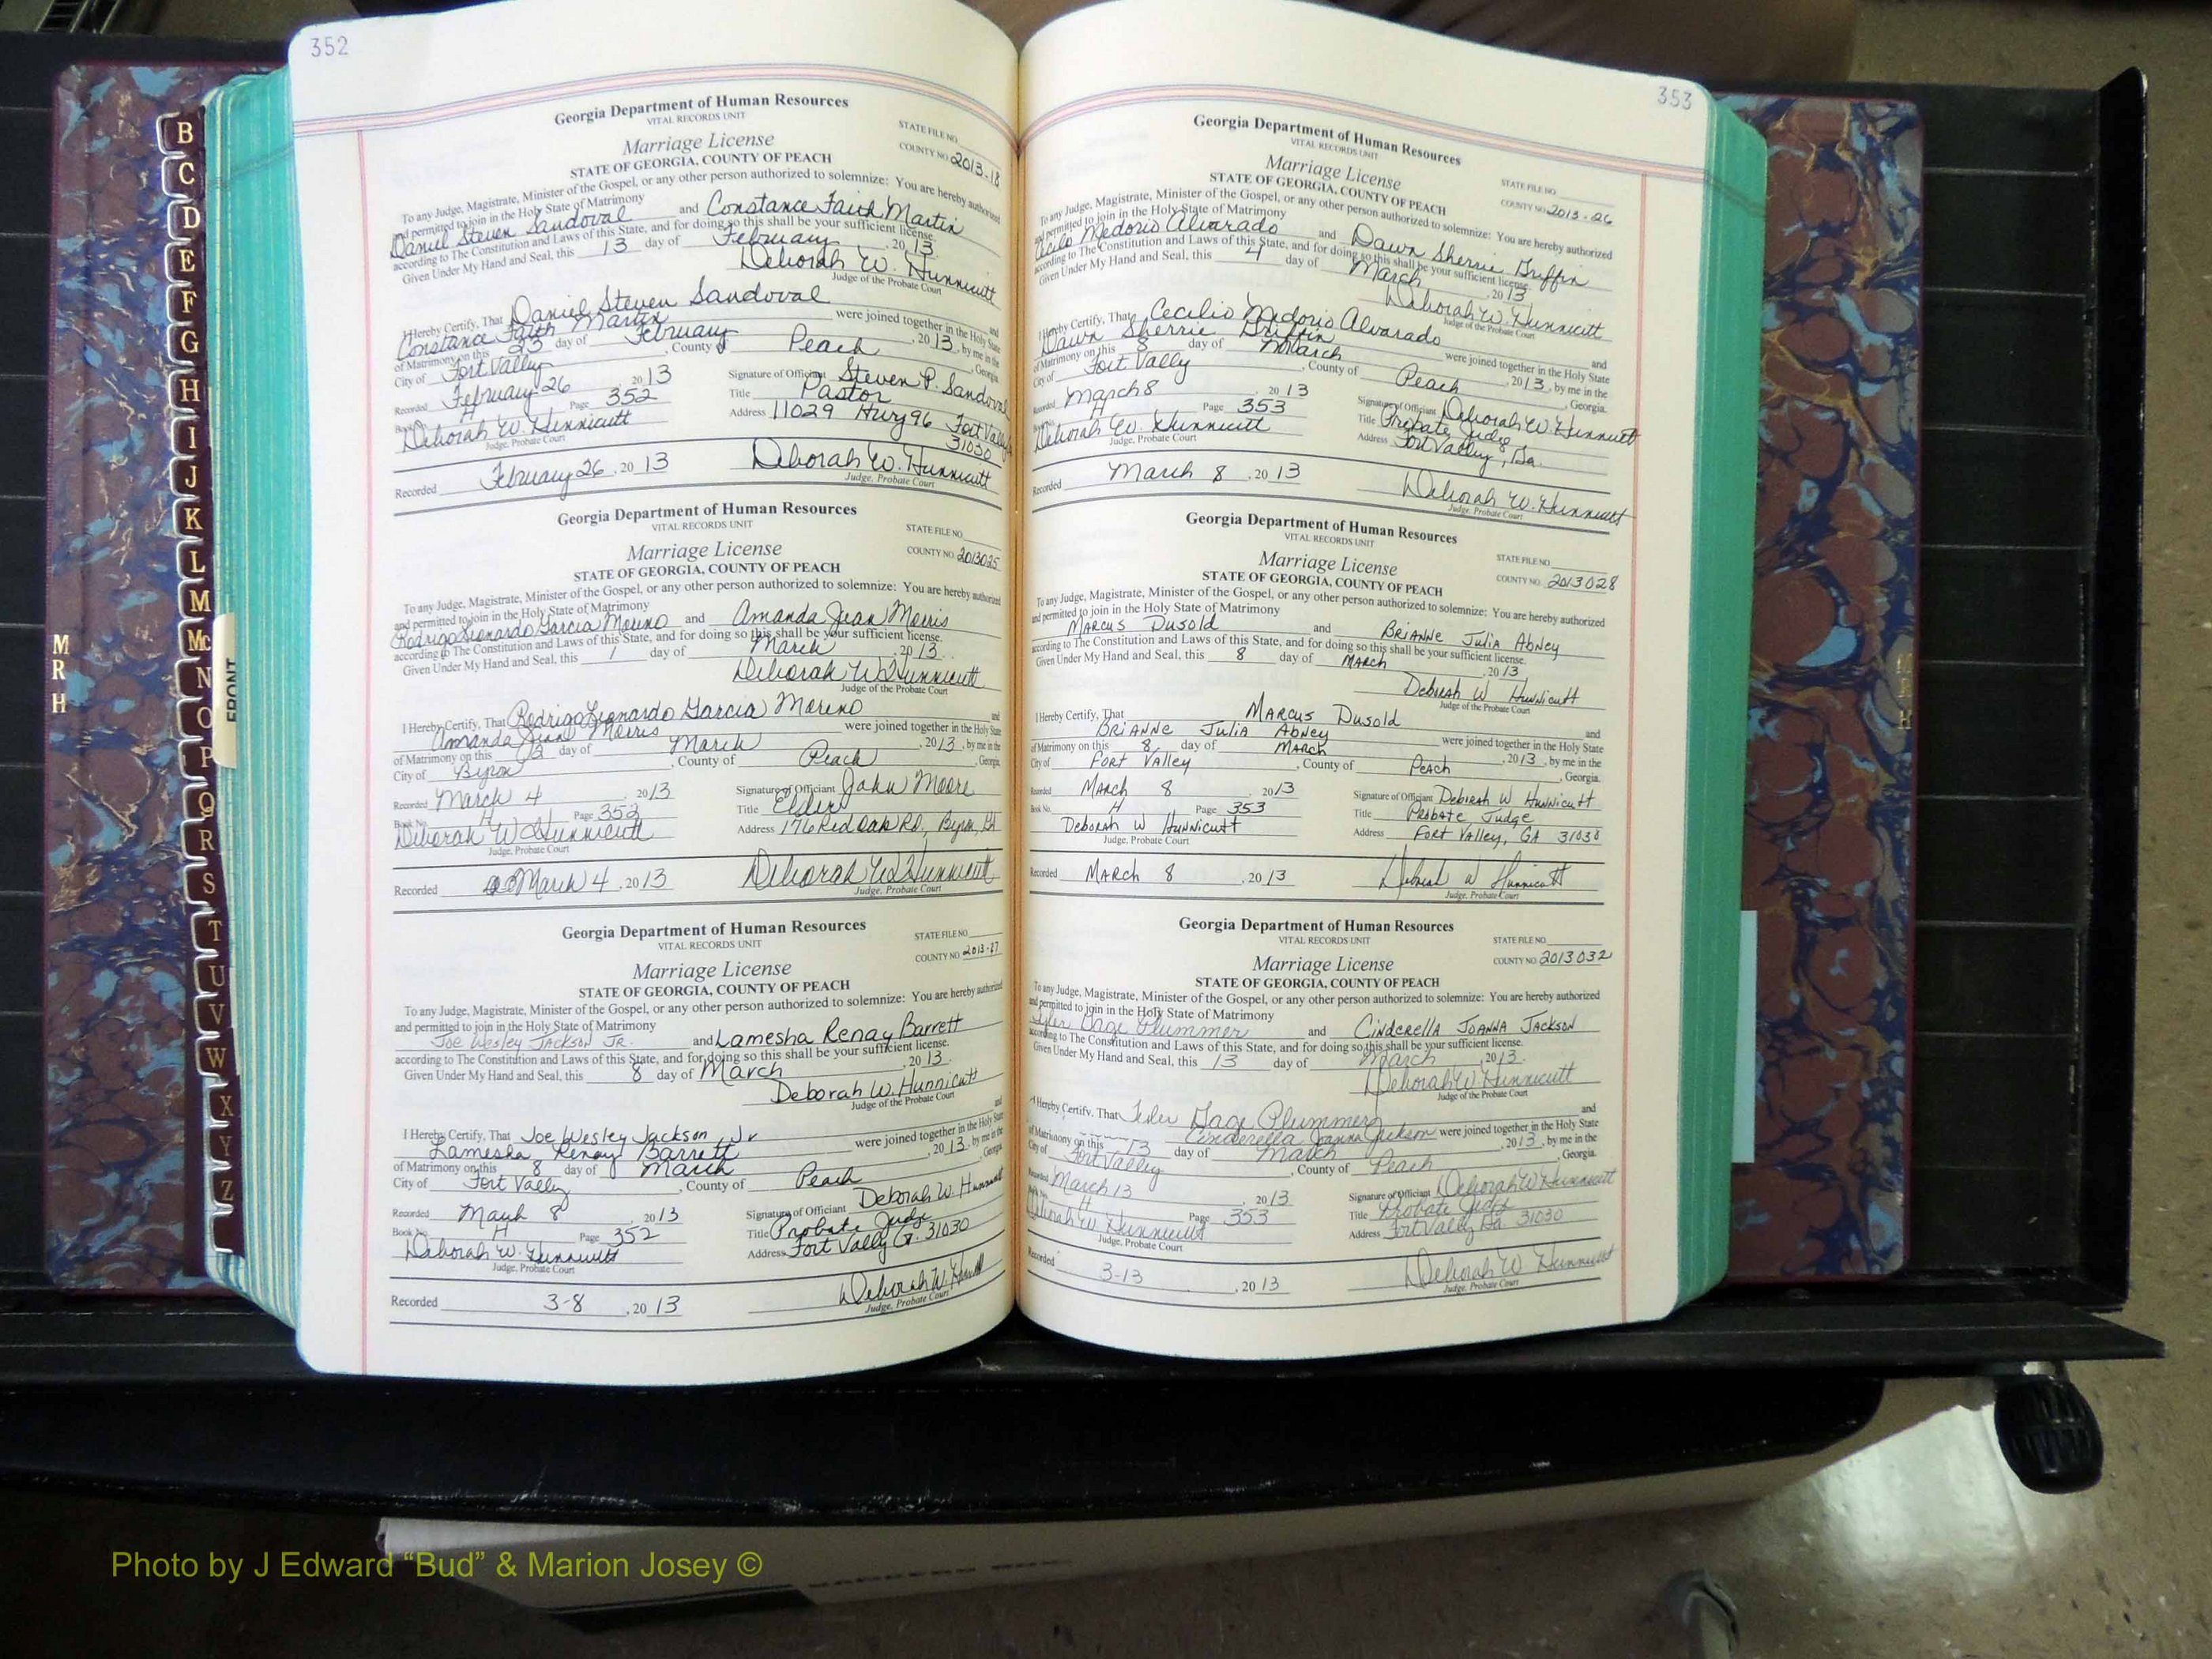 352
Georgia Department of Human Resources
VITAL RECORDS UNIT
STATE FILE NO.
Marriage License
COUNTY NO. 2013-18
STATE OF GEORGIA, COUNTY OF PEACH
To any Judge, Magistrate, Minister of the Gospel, or any other person authorized to solemnize: You are hereby authorized
and permitted to join in the Holy State of Matrimony
Daniel Steven Sandoval and Constance Faith Martin
according to The Constitution and Laws of this State, and for doing so this shall be your sufficient license.
Given Under My Hand and Seal, this 13 day of February, 2013
Deborah W. Hunnicutt
Judge of the Probate Court
I Hereby Certify, That Daniel Steven Sandoval and
Constance Faith Martin were joined together in the Holy State
of Matrimony on this 23 day of February, 2013, by me in the
City of Fort Valley, County of Peach, Georgia.
Recorded February 26 2013 Signature of Officiant Steven P. Sandoval
Book No. H Page 352 Title Pastor
Deborah W. Hunnicutt Address 11029 Hwy 96 Fort Valley
Judge, Probate Court 31030
Recorded February 26, 2013 Deborah W. Hunnicutt
Judge, Probate Court
Georgia Department of Human Resources
VITAL RECORDS UNIT
STATE FILE NO.
Marriage License
COUNTY NO. 2013025
STATE OF GEORGIA, COUNTY OF PEACH
To any Judge, Magistrate, Minister of the Gospel, or any other person authorized to solemnize: You are hereby authorized
and permitted to join in the Holy State of Matrimony
Rodrigo Leonardo Garcia Moreno and Amanda Jean Morris
according to The Constitution and Laws of this State, and for doing so this shall be your sufficient license.
Given Under My Hand and Seal, this 1 day of March, 2013
Deborah W Hunnicutt
Judge of the Probate Court
I Hereby Certify, That Rodrigo Leonardo Garcia Moreno and
Amanda Jean Morris were joined together in the Holy State
of Matrimony on this day of March, 2013, by me in the
City of Byron, County of Peach, Georgia.
Recorded March 4 2013 Signature of Officiant John Moore
Book No. H Page 352 Title Elder
Deborah W Hunnicutt Address 176 Red Oak Rd, Byron, GA
Judge, Probate Court
Recorded March 4, 2013 Deborah W Hunnicutt
Judge, Probate Court
Georgia Department of Human Resources
VITAL RECORDS UNIT
STATE FILE NO.
COUNTY NO. 2013-27
Marriage License
STATE OF GEORGIA, COUNTY OF PEACH
To any Judge, Magistrate, Minister of the Gospel, or any other person authorized to solemnize: You are hereby authorized
and permitted to join in the Holy State of Matrimony
Joe Wesley Jackson Jr. and Lamesha Renay Barrett
according to The Constitution and Laws of this State, and for doing so this shall be your sufficient license.
Given Under My Hand and Seal, this 8 day of March, 2013.
Deborah W. Hunnicutt
Judge of the Probate Court
I Hereby Certify, That Joe Wesley Jackson, Jr and
Lamesha Renay Barrett were joined together in the Holy State
of Matrimony on this 8 day of March, 2013, by me in the
City of Fort Valley, County of Peach, Georgia.
Recorded March 8 2013 Signature of Officiant Deborah W. Hunnicutt
Book No. H Page 352 Title Probate Judge
Deborah W. Hunnicutt Address Fort Valley Ga. 31030
Judge, Probate Court
Recorded 3-8, 2013 Deborah W. Hunnicutt
Judge, Probate Court
353
Georgia Department of Human Resources
VITAL RECORDS UNIT
Marriage License
STATE FILE NO.
STATE OF GEORGIA, COUNTY OF PEACH
COUNTY NO. 2013-26
To any Judge, Magistrate, Minister of the Gospel, or any other person authorized to solemnize: You are hereby authorized
and permitted to join in the Holy State of Matrimony
Cecilio Medorio Alvarado and Dawn Sherrie Griffin
according to The Constitution and Laws of this State, and for doing so this shall be your sufficient license.
Given Under My Hand and Seal, this 4 day of March, 2013
Deborah W. Hunnicutt
Judge of the Probate Court
I Hereby Certify, That Cecilio Medorio Alvarado and
Dawn Sherrie Griffin were joined together in the Holy State
of Matrimony on this 8 day of March, 2013, by me in the
City of Fort Valley, County of Peach, Georgia.
Recorded March 8, 2013 Signature of Officiant Deborah W. Hunnicutt
Book No. H Page 353 Title Probate Judge
Deborah W. Hunnicutt Address Fort Valley, Ga.
Judge, Probate Court
Recorded March 8, 2013 Deborah W. Hunnicutt
Judge, Probate Court
Georgia Department of Human Resources
VITAL RECORDS UNIT
STATE FILE NO.
Marriage License
COUNTY NO. 2013028
STATE OF GEORGIA, COUNTY OF PEACH
To any Judge, Magistrate, Minister of the Gospel, or any other person authorized to solemnize: You are hereby authorized
and permitted to join in the Holy State of Matrimony
Marcus Dusold and Brianne Julia Abney
according to The Constitution and Laws of this State, and for doing so this shall be your sufficient license.
Given Under My Hand and Seal, this 8 day of March, 2013
Deborah W Hunnicutt
Judge of the Probate Court
I Hereby Certify, That Marcus Dusold and
Brianne Julia Abney were joined together in the Holy State
of Matrimony on this 8 day of March, 2013, by me in the
City of Fort Valley, County of Peach, Georgia.
Recorded March 8, 2013 Signature of Officiant Deborah W Hunnicutt
Book No. H Page 353 Title Probate Judge
Deborah W Hunnicutt Address Fort Valley, GA 31030
Judge, Probate Court
Recorded March 8, 2013 Deborah W Hunnicutt
Judge, Probate Court
Georgia Department of Human Resources
VITAL RECORDS UNIT
STATE FILE NO.
Marriage License
COUNTY NO. 2013032
STATE OF GEORGIA, COUNTY OF PEACH
To any Judge, Magistrate, Minister of the Gospel, or any other person authorized to solemnize: You are hereby authorized
and permitted to join in the Holy State of Matrimony
Tyler Gage Plummer and Cinderella Joanna Jackson
according to The Constitution and Laws of this State, and for doing so this shall be your sufficient license.
Given Under My Hand and Seal, this 13 day of March, 2013.
Deborah W Hunnicutt
Judge of the Probate Court
I Hereby Certify, That Tyler Gage Plummer and
Cinderella Joanna Jackson were joined together in the Holy State
of Matrimony on this 13 day of March, 2013, by me in the
City of Fort Valley, County of Peach, Georgia.
Recorded March 13, 2013 Signature of Officiant Deborah W Hunnicutt
Book No. Page 353 Title Probate Judge
Deborah W. Hunnicutt Address Fort Valley Ga 31030
Judge, Probate Court
Recorded 3-13, 2013 Deborah W. Hunnicutt
Judge, Probate Court
B
C
D
E
F
G
H
I
J
K
L
M
Mc
N
O
P
Q
R
S
T
U
V
W
X
Y
Z
FRONT
M
R
H
Photo by J Edward “Bud” & Marion Josey ©